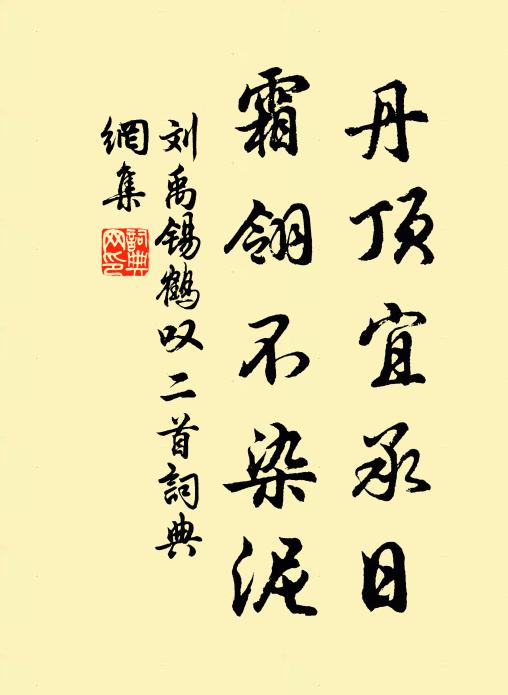 丹顶宜承日
霜翎不染泥
刘禹锡鹤叹二首詞典
網集
詞典网印